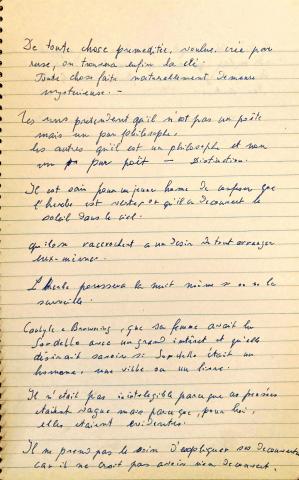 De toute chose préméditée, voulue, créée par
ruse, on trouvera enfin la clé.
Toute chose faite naturellement demeure
mystérieuse. -
Les uns prétendent qu'il n'est pas un poète
mais un pur philosophe,
les autres qu'il est un philosophe et non
un pur poèt — Distinction.
Il est sain pour un jeune home de confesser que
l'herbe est verte ou qu'il a découvert le
soleil dans le ciel.
qu'ils se raccrochent a un desir de tout arranger
eux-mêmes.
L'Herbe poussera la nuit même si on ne la
surveille.
Carlyle a Browning, que sa femme avait lu
Sordello avec un grand intérêt et qu'elle
désirait savoir si Sordello était un
homme, une ville ou un livre.
Il n'était pas inintelegible parceque ses pensées
étaient vague mais parceque, pour lui,
elles étaient évidentes.
Il ne prend pas le soin d'expliquer ses decouvertes
car il ne croit pas avoir rien decouvert.